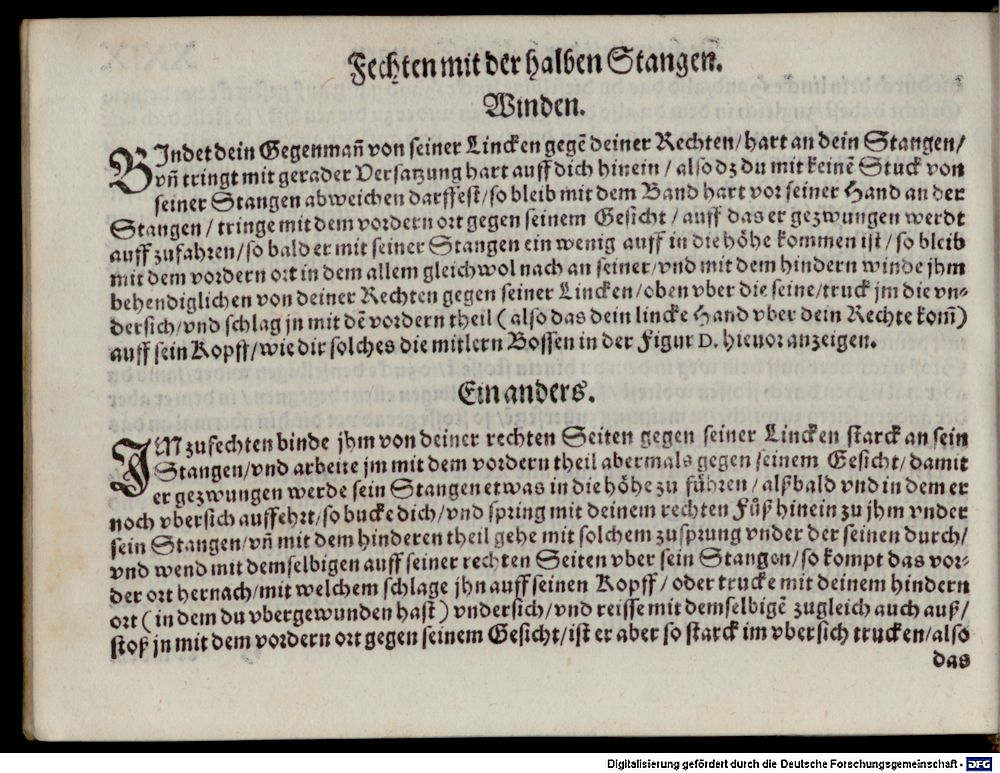 Fechten mit der halben Stangen.
Winden.
BIndet dein Gegenmañ von seiner Lincken gegẽ deiner Rechten/ hart an dein Stangen/
vñ tringt mit gerader Versatzung hart auff dich hinein / also dz du mit keinẽ Stuck von
seiner Stangen abweichen darffest/ so bleib mit dem Band hart vor seiner Hand an der
Stangen / tringe mit dem vordern ort gegen seinem Gesicht / auff das er gezwungen werdt
auff zufahren/ so bald er mit seiner Stangen ein wenig auff in die höhe kommen ist / so bleib
mit dem vordern ort in dem allem gleichwol nach an seiner/ vnd mit dem hindern winde jhm
behendiglichen von deiner Rechten gegen seiner Lincken / oben vber die seine/ truck jm die vn-
dersich/ vnd schlag jn mit dẽ vordern theil ( also das dein lincke Hand vber dein Rechte kom̃)
auff sein Kopff/ wie dir solches die mitlern Bossen in der Figur D. hieuor anzeigen.
Ein anders.
IM zufechten binde jhm von deiner rechten Seiten gegen seiner Lincken starck an sein
Stangen/ vnd arbeite jm mit dem vordern theil abermals gegen seinem Gesicht/ damit
er gezwungen werde sein Stangen etwas in die höhe zu führen / alßbald vnd in dem er
noch vbersich auffehrt/ so bucke dich/ vnd spring mit deinem rechten Fůß hinein zu jhm vnder
sein Stangen/ vñ mit dem hinderen theil gehe mit solchem zusprung vnder der seinen durch/
vnd wend mit demselbigen auff seiner rechten Seiten vber sein Stangen/ so kompt das vor-
der ort hernach/ mit welchem schlage jhn auff seinen Kopff / oder trucke mit deinem hindern
ort ( in dem du vbergewunden hast ) vndersich/ vnd reisse mit demselbigẽ zugleich auch auß/
stoß jn mit dem vordern ort gegen seinem Gesicht/ ist er aber so starck im vbersich trucken/ also
das
Digitalisierung gefördert durch die Deutsche Forschungsgemeinschaft - DFG